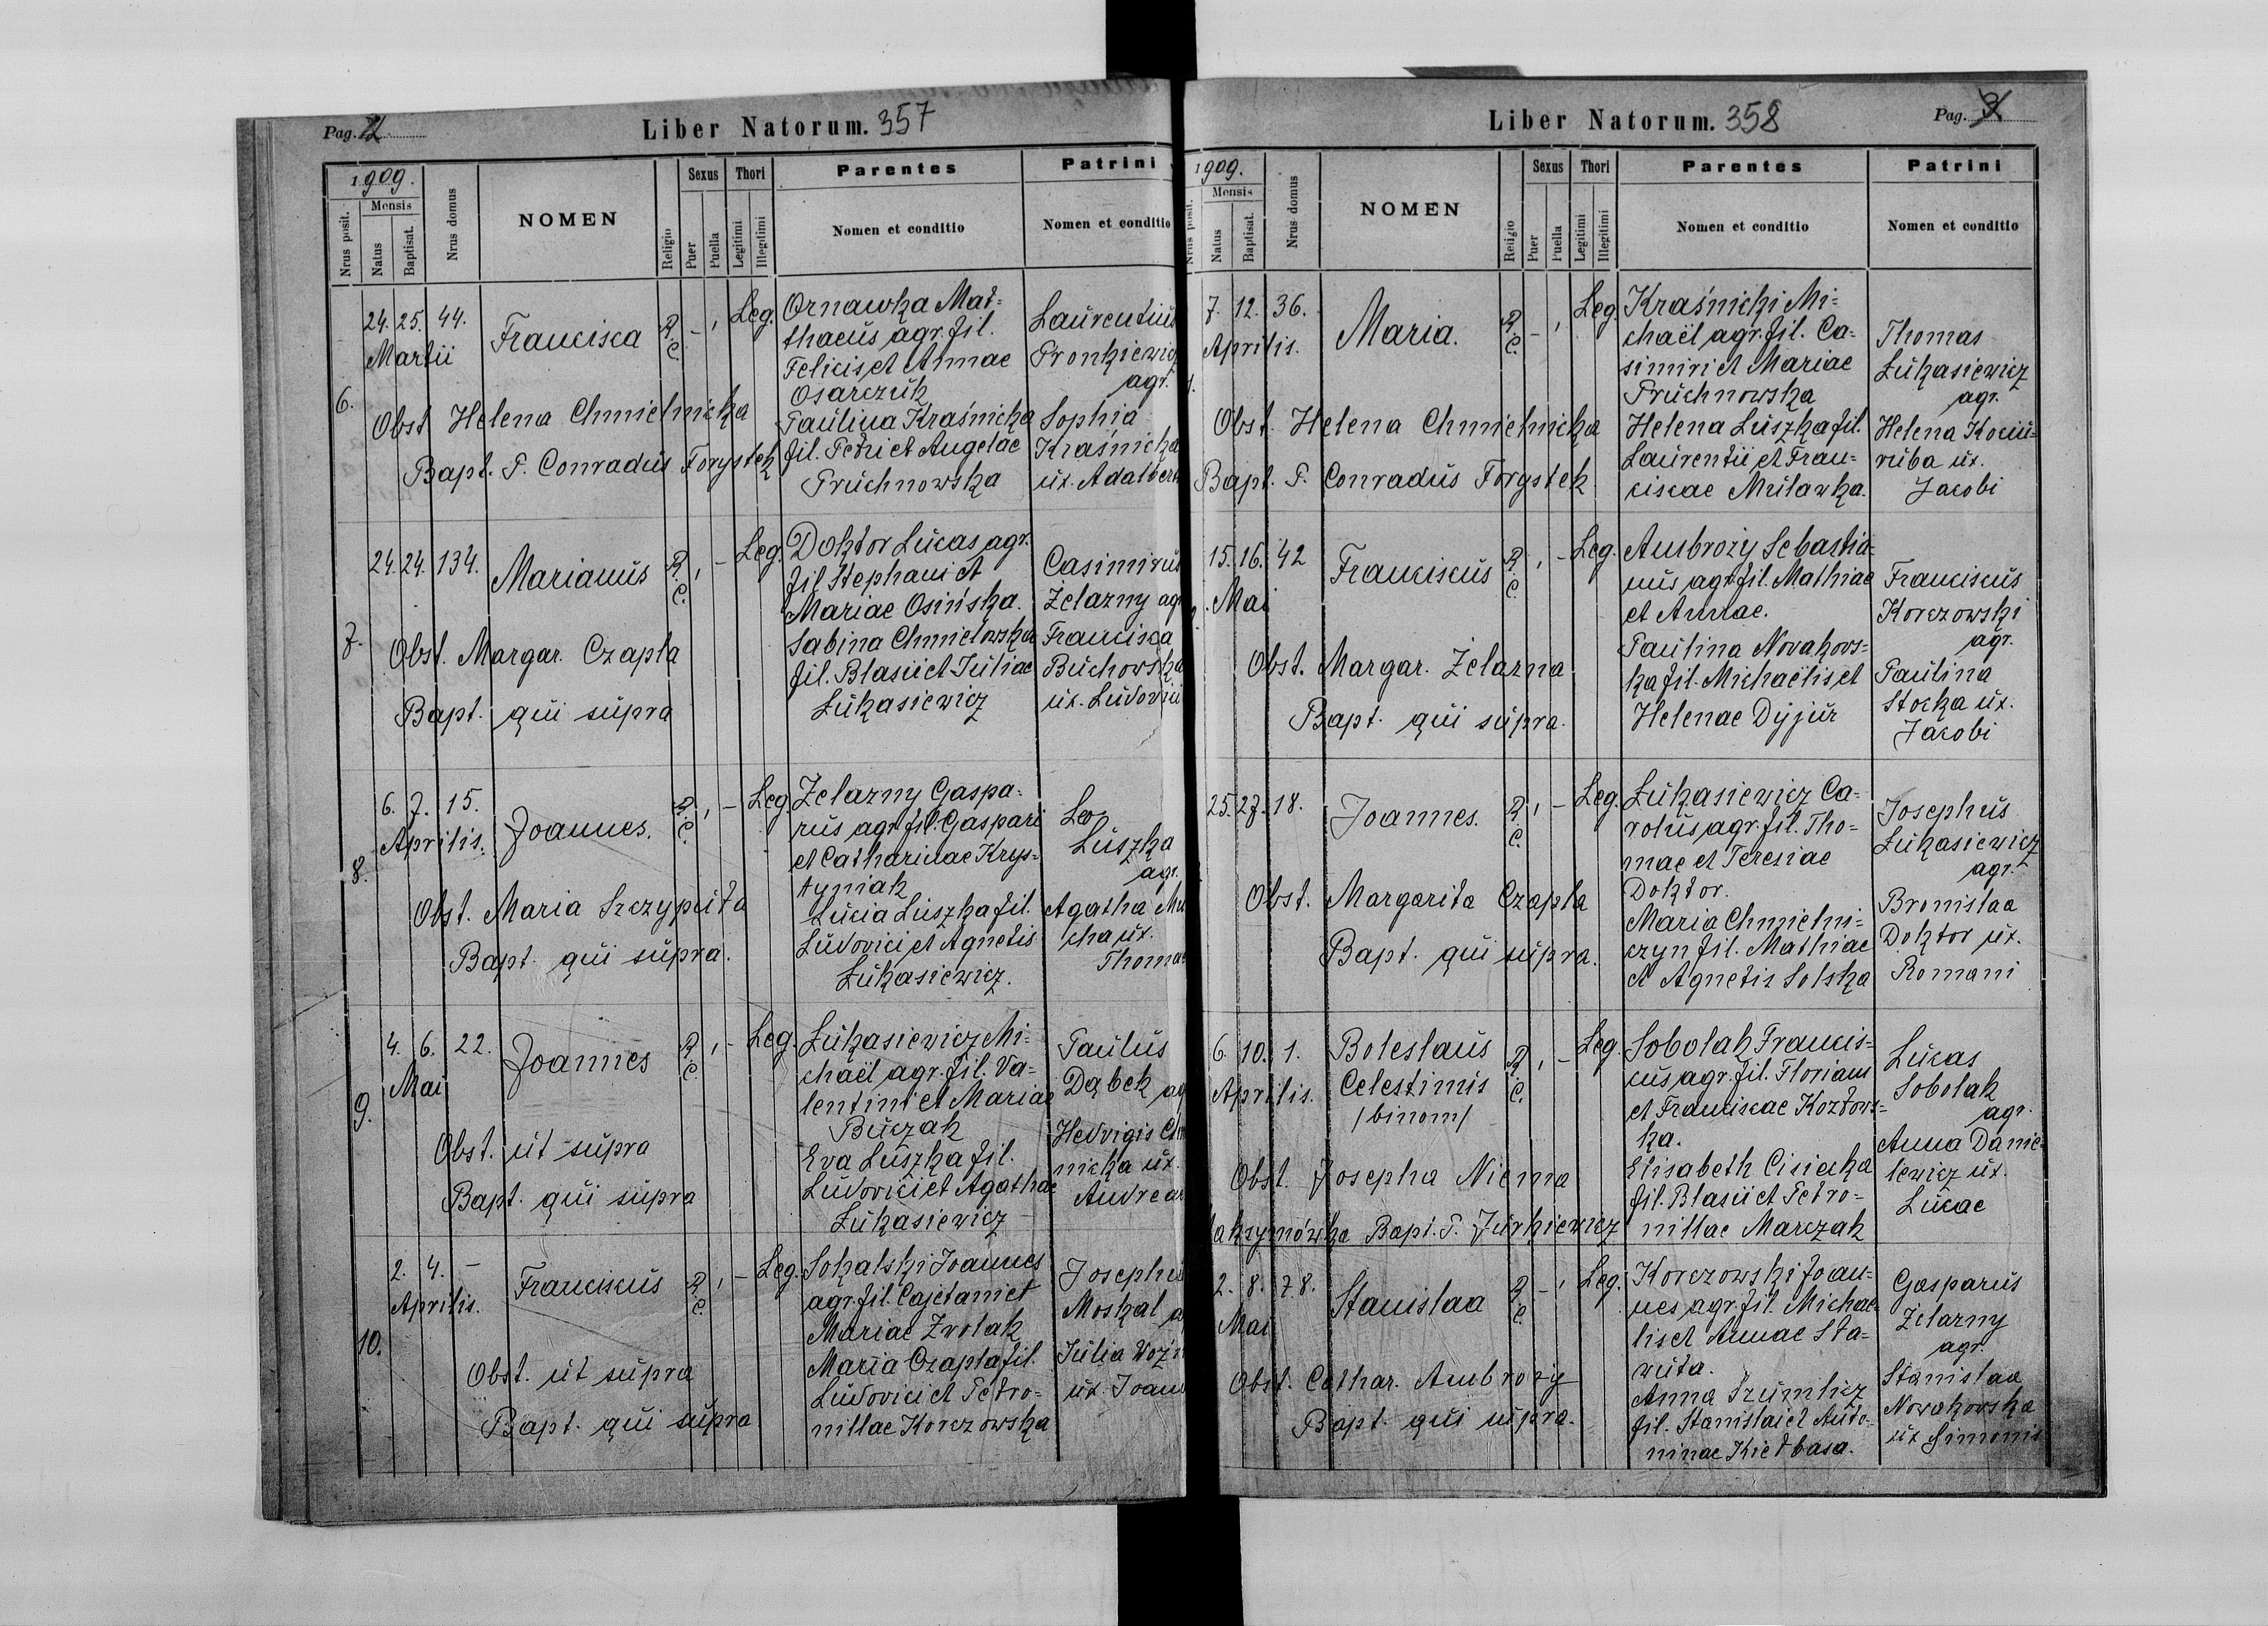 Pag. 2
Liber Natorum. 357
1909.
Nrus posit.
Mensis
Natus
Baptisat.
Nrus domus
NOMEN
Religio
Sexus
Puer
Puella
Thori
Legitimi
Illegitimi
Parentes
Nomen et conditio
Patrini
Nomen et conditio
6.
24. 25. 44.
Martii
Francisca
R. C.
- ,
Leg.
Ornawka Mat=
thaeus agr. fil.
Felicis et Annae
Osarczuk
Paulina Kraśnicka
fil. Petri et Angelae
Pruchnowska
Laurentius
Pronkiewicz
agr.
Sophia
Kraśnicka
ux. Adalberti
Obst. Helena Chmielnicka
Bapt. P. Conradus Forystek
7.
24. 24. 134.
Marianus
R. C.
, -
Leg.
Doktor Lucas agr.
fil. Stephani et
Mariae Osińska.
Sabina Chmielowska
fil. Blasii et Juliae
Łukasiewicz
Casimirus
Żelazny agr
Francisca
Buchowska
ux. Ludovici
Obst. Margar. Czapla
Bapt. qui supra
8.
6. 7. 15.
Aprilis.
Joannes.
R. C.
, -
Leg.
Żelazny Gaspa=
rus agr. fil. Gaspari
et Catharinae Krys=
tyniak
Lucia Luszka fil.
Ludovici et Agnetis
Łukasiewicz.
Leo
Luszka
agr.
Agatha Mu
cha ux.
Thomae
Obst. Maria Szczypuita
Bapt. qui supra.
9.
4. 6. 22.
Mai
Joannes
R. C.
, -
Leg.
Łukasiewicz Mi=
chaël agr. fil. Va=
lentini et Mariae
Buczak
Eva Luszka fil.
Ludovici et Agathae
Łukasiewicz
Paulus
Dąbek ag
Hedvigis Chm
nicka ux.
Andreae
Obst. ut supra
Bapt. qui supra
10.
2. 4. -
Aprilis.
Franciscus
R. C.
, -
Leg.
Sokalski Joannes
agr. fil. Cajetani et
Mariae Zrolak
Maria Czapla fil.
Ludovici et Petro=
nillae Korczowska
Josephus
Moskal a
Julia Woźn
ux. Joann
Obst. ut supra
Bapt. qui supra
Liber Natorum. 358
Pag. 3
1909.
Nrus posit.
Mensis
Natus
Baptisat.
Nrus domus
NOMEN
Religio
Sexus
Puer
Puella
Thori
Legitimi
Illegitimi
Parentes
Nomen et conditio
Patrini
Nomen et conditio
7. 12. 36.
Aprilis.
Maria.
R. C.
- ,
Leg.
Kraśnicki Mi=
chaël agr. fil. Ca=
simiri et Mariae
Pruchnowska
Helena Luszka fil.
Laurentii et Fran=
ciscae Mulawka.
Thomas
Łukasiewicz
agr.
Helena Kociu=
ruba ux.
Jacobi
Obst. Helena Chmielnicka
Bapt. P. Conradus Forystek
15. 16. 42
Mai
Franciscus
R. C.
, -
Leg.
Ambroży Sebastia=
nus agr. fil. Mathiae
et Annae.
Paulina Novakows=
ka fil. Michaëlis et
Helenae Dyjur
Franciscus
Korczowski
agr.
Paulina
Stocka ux.
Jacobi
Obst. Margar. Żelazna
Bapt. qui supra.
25. 27. 18.
Joannes.
R. C.
, -
Leg.
Łukasiewicz Ca=
rolus agr. fil. Tho=
mae et Teresiae
Doktor.
Maria Chmielni=
czyn fil. Mathiae
et Agnetis Solska
Josephus
Łukasiewicz
agr.
Bronislaa
Doktor ux.
Romani
Obst. Margarita Czapla
Bapt. qui supra.
6. 10. 1.
Aprilis.
Boleslaus
Celestinus
/binom/
R. C.
, -
Leg.
Sobolak Francis=
cus agr. fil. Floriani
et Franciscae Kozłows=
ka.
Elisabeth Cisieka
fil. Blasii et Petro=
nillae Marczak
Lucas
Sobolak
agr.
Anna Danie=
lewicz ux.
Lucae
Obst. Josepha Niema
akrymówka Bapt. P. Jurkiewicz
2. 8. 78.
Mai
Stanislaa
R. C.
- ,
Leg.
Korczowski Joan=
nes agr. fil. Michae=
lis et Annae Sta=
wuta.
Anna Prumlicz
fil. Stanislai et Anto=
ninae Kiełbasa.
Gasparus
Żelazny
agr.
Stanislaa
Novakowska
ux Simonis
Obst. Cathar. Ambroży
Bapt. qui supra.